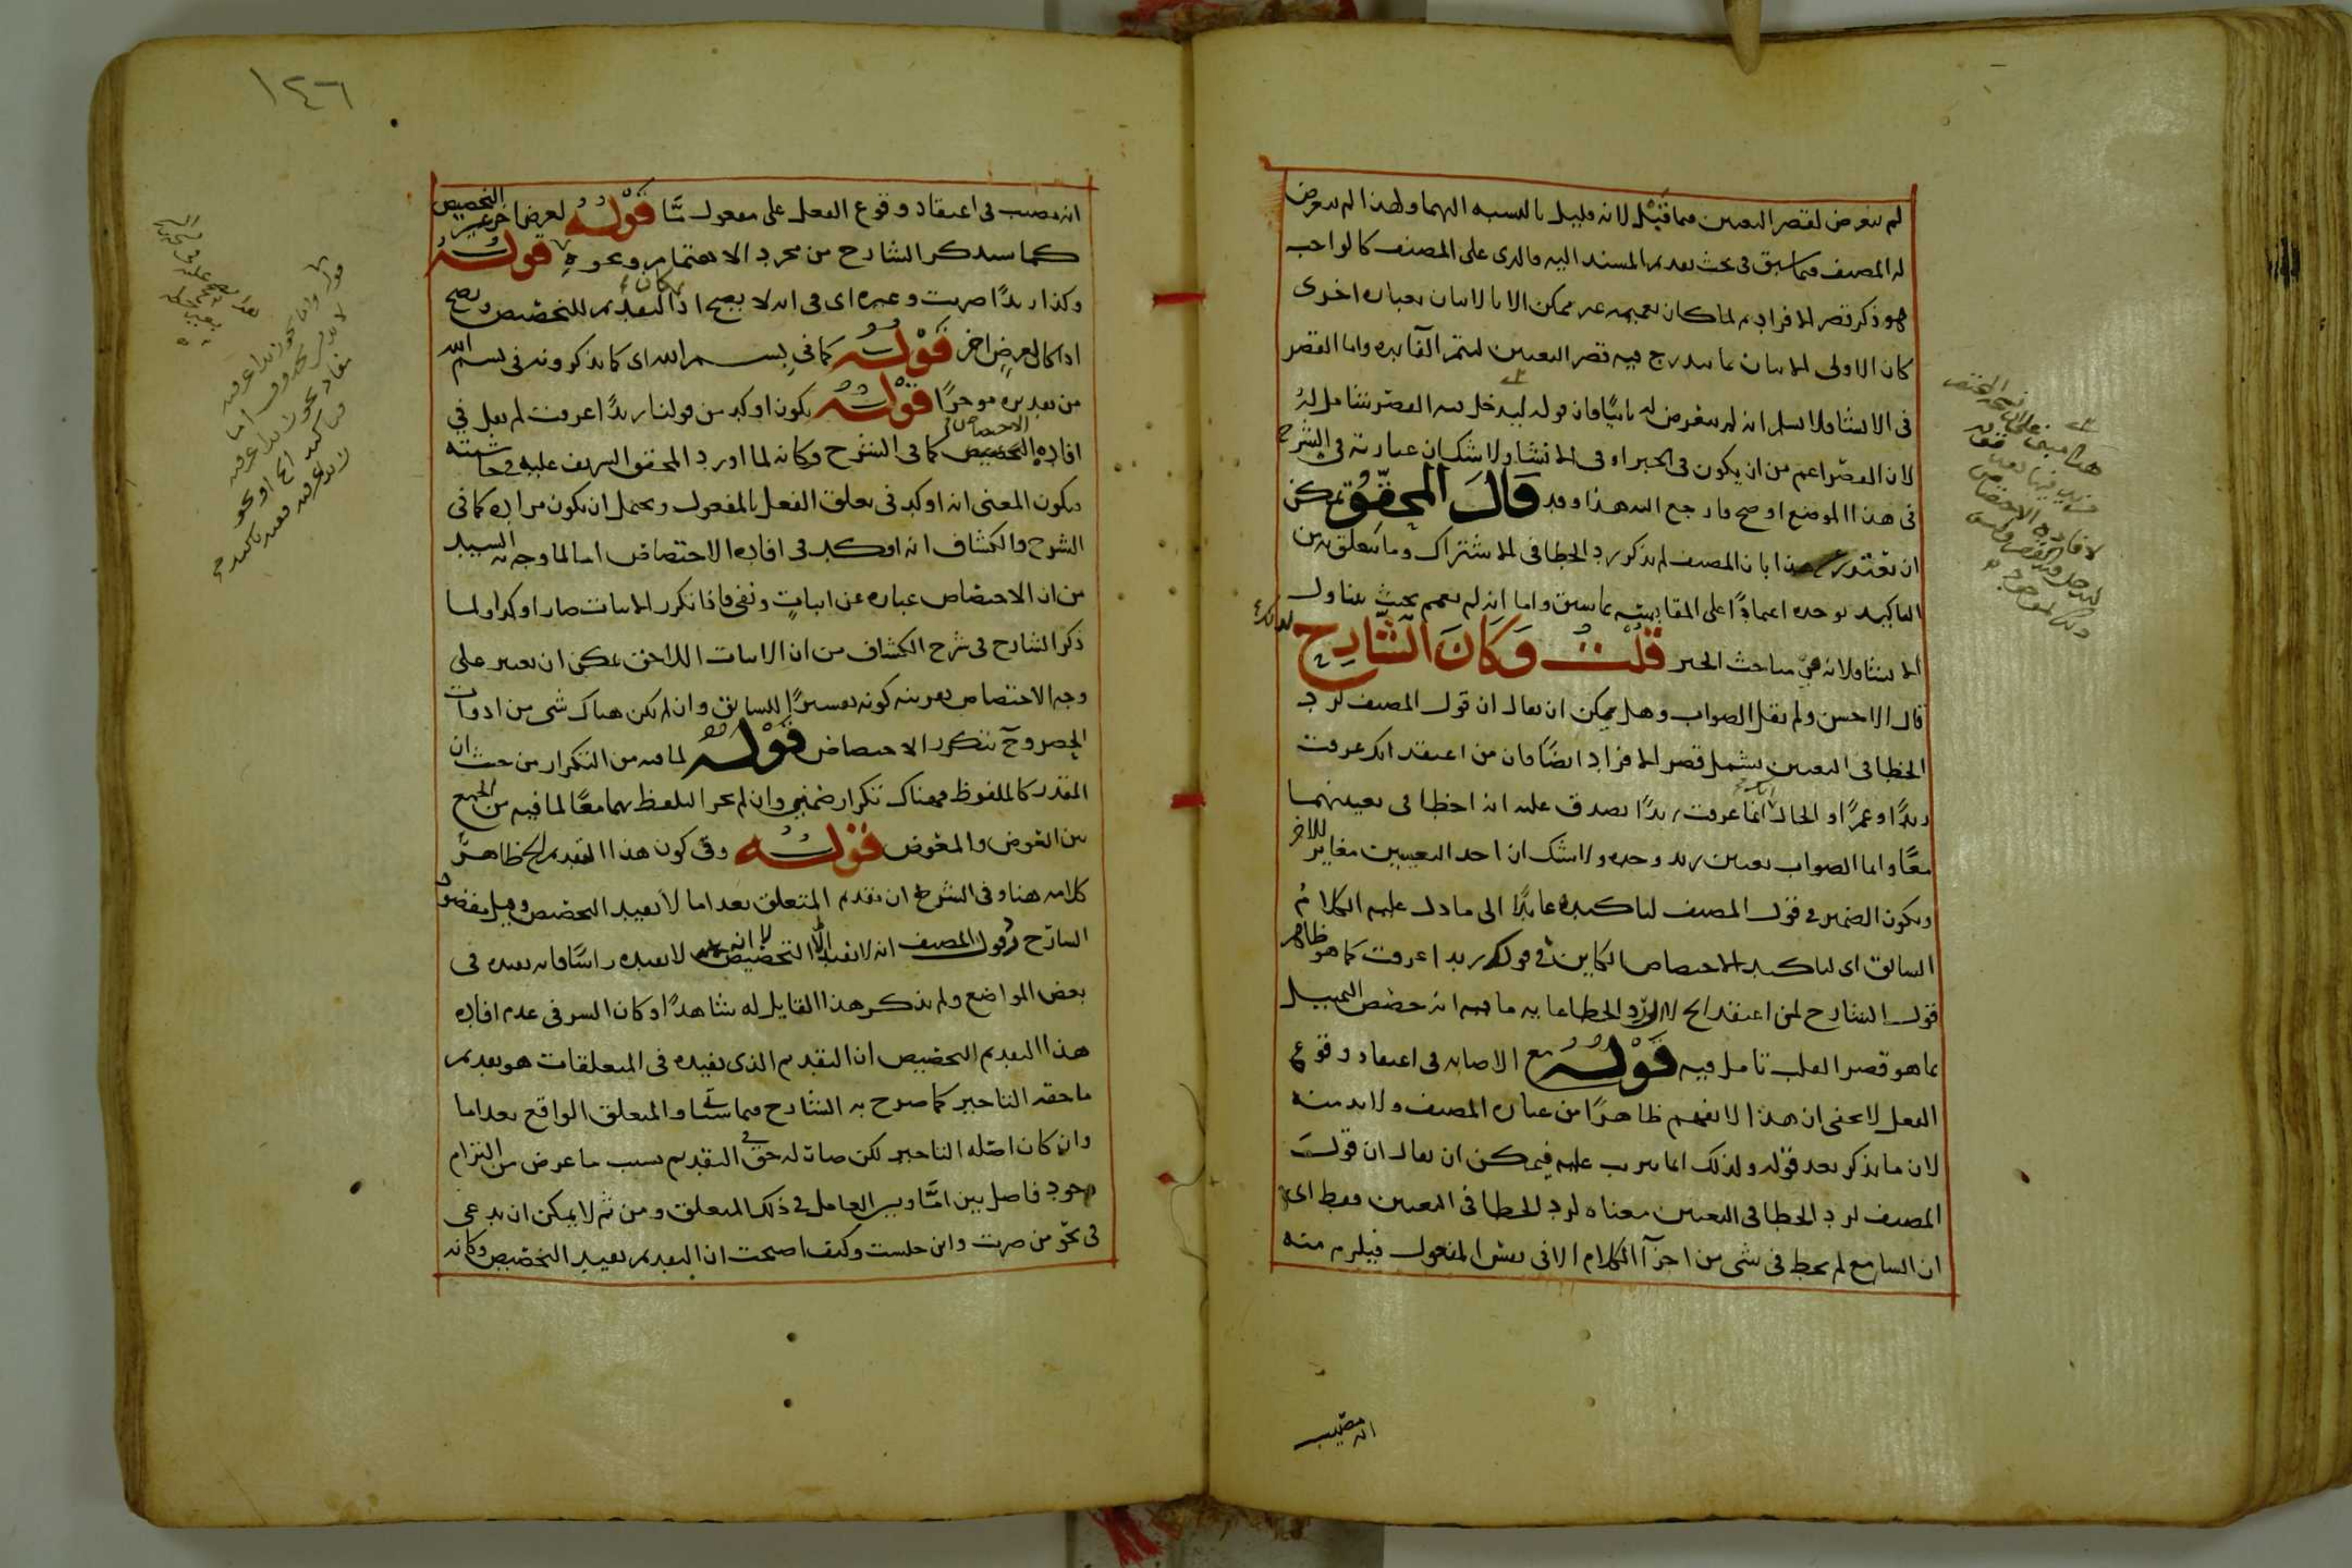 لم يتعرض لقصر التعيين فيما قبل لانه قليل بالنسبه اليهما ولهذا لم يتعرض
له المصنف فيما سبق فى بحث تقديم المسند اليه فالذى على المصنف كالواجب
هو ذكر قصر الافراد لما كان تعميمه غير ممكن الا بالاتيان بعباره اخرى
كان الاولى الاتيان بما يندرج فيه قصر التعيين لتتم الفايده واما القصر
فى الانشا ولا نسلم انه لم يتعرض له ثانيًا فان قوله ليدخل فيه القصر شامل له
لان القصر اعم من ان يكون فى الخبر او فى الانشا ولا شك ان عبارته فى الشرح
فى هذا الموضع اوضح فارجع اليه هذا وقد قال المحقق يمكن
ان يعتذر عن هذا بان المصنف لم يذكر رد الخطا فى الاشتراك وما يتعلق به من
التاكيد بوحده اعتمادًا على المقايسة بما سبق واما انه لم يعمم بحيث يتناول
الانشا فلانه فى مباحث الخبر قلت وكان الشارح
قال الاحسن ولم يقل الصواب وهل يمكن ان يقال ان قول المصنف لرد
الخطا فى التعيين يشمل قصر الافراد ايضًا فان من اعتقد انك عرفت
زيدًا وعمرًا والحال انك انما عرفت زيدًا يصدق عليه انه اخطا فى تعيينهما
معًا وانما الصواب تعيين زيد وحده ولا شك ان احد التعيينين مغاير للاخر
ويكون الضمير فى قول المصنف لتاكيده عايدًا الى ما دل عليه الكلام
السابق اى لتاكيد الاختصاص الكاين فى قولك زيدا عرفت كما هو ظاهر
قول الشارح لمن اعتقد الخ لا لرد الخطا غاية ما فيه انه خصص التمثيل
بما هو قصر القلب تامل فيه قوله مع الاصابه فى اعتقاد وقوع
الفعل لا يخفى ان هذا لا يفهم ظاهرًا من عباره المصنف ولا بد منه
لان ما يذكر بعد قوله ولذلك انما يترتب عليه فيمكن ان يقال ان قول
المصنف لرد الخطا فى التعيين معناه لرد الخطا فى التعيين فقط اى
ان السامع لم يخط فى شى من اجزآ الكلام الا فى تعين المفعول فيلزم منه
انه مصيب
١٤٦
انه مصيب فى اعتقاد وقوع الفعل على مفعول مّا قوله لغرض اخر غير التخصيص
كما سيذكر الشارح من مجرد الاهتمام ونحوه قوله
وكذا زيدًا ضربت وغيره اى فى انه لا يصح اذا كان التقديم للتخصيص ويصح
اذا كان لغرض اخر قوله كما فى بسم الله اى كما يذكرونه فى بسم الله
من تقديره موخرًا قوله يكون اوكد من قولنا زيدًا عرفت لم يقل فى
افاده الاختصاص كما فى الشرح وكانه لما اورد المحقق الشريف عليه فى حاشيته
فيكون المعنى انه اوكد فى تعلق الفعل بالمفعول ويحتمل ان يكون مراده كما فى
الشرح والكشاف انه اوكد فى افاده الاختصاص اما لما وجه به السيد
من ان الاختصاص عباره عن اثبات ونفى فاذا تكرر الاثبات صار اوكد او لما
ذكر الشارح فى شرح الكشاف من ان الاثبات اللاحق يمكن ان يعتبر على
وجه الاختصاص بقرينه كونه تفسيرًا للسابق وان لم يكن هناك شى من ادوات
الحصر وح يتكرر الاختصاص قوله لما فيه من التكرار من حيث ان
المقدر كالملفوظ فهناك تكرار ضمنى وان لم يجز التلفظ بهما معًا لما فيه من الجمع
بين العوض والمعوض قوله وفى كون هذا التقديم الخ ظاهر
كلامه هنا وفى الشرح ان تقديم المتعلق بعد اما لا يفيد التخصيص وقيل مقصود
الشارح وقول المصنف انه لا يفيد الا التخصيص لا انه لا يفيده راسًا فانه يفيده فى
بعض المواضع ولم يذكر هذا القايل له شاهدًا وكان السر فى عدم افاده
هذا التقديم التخصيص ان التقديم الذى يفيده فى المتعلقات هو تقديم
ما حقه التاخير كما صرح به الشارح فيما سياتى والمتعلق الواقع بعد اما
وان كان اصله التاخير لكن صار له حق فى التقديم بسبب ما عرض من التزام
وجود فاصل بين امّا وبين العامل فى ذلك المتعلق ومن ثم لا يمكن ان يدعى
فى نحو من ضربت واين جلست وكيف اصبحت ان التقديم يفيد التخصيص وكانه